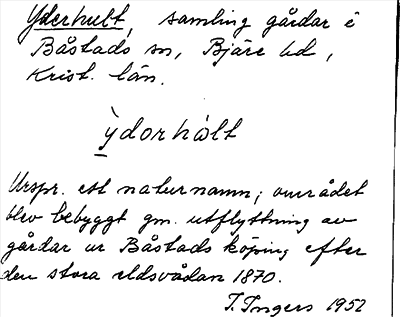 Yderhult, samling gårdar i
Båstads sn, Bjäre hd,
Krist. län.
ỳdorhòlt
Urspr. ett naturnamn; området
blev bebyggt gm. utflyttning av
gårdar ur Båstads köping efter
den stora eldsvådan 1870.
T. Ingers 1952